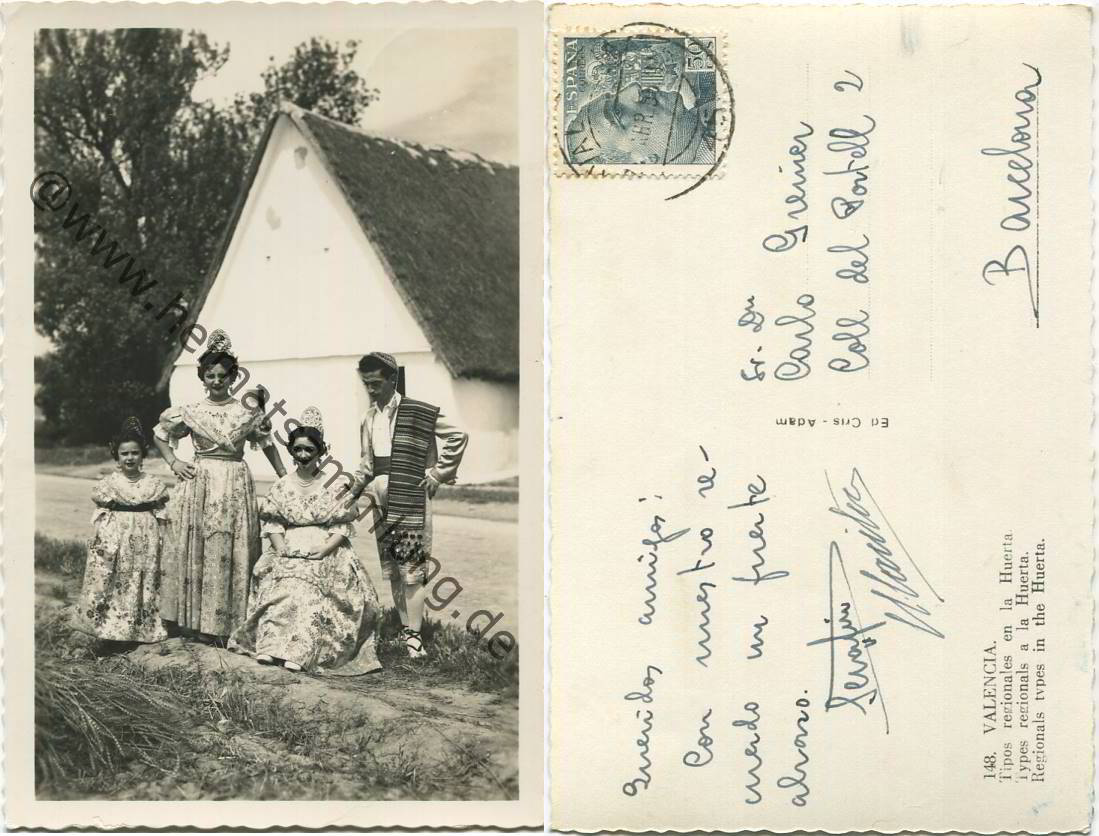 @www.heimatsammlung.de
ESPAÑA
50 CTS
Queridos amigos:
Con nuestro re-
cuerdo un fuerte
abrazo.
Serafin
Ed Cris - Adam
Sr. Dn
Carlo Greiner
Coll del Portell 2
Barcelona
148. VALENCIA.
Tipos regionales en la Huerta.
Types regionals a la Huerta.
Regionals types in the Huerta.